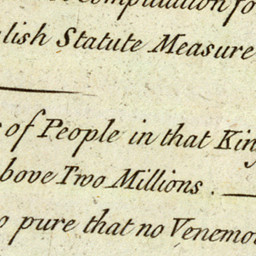 Computation fo
lish Statute Measure
s of People in that King
bove Two Millions.
o pure that no Venemo